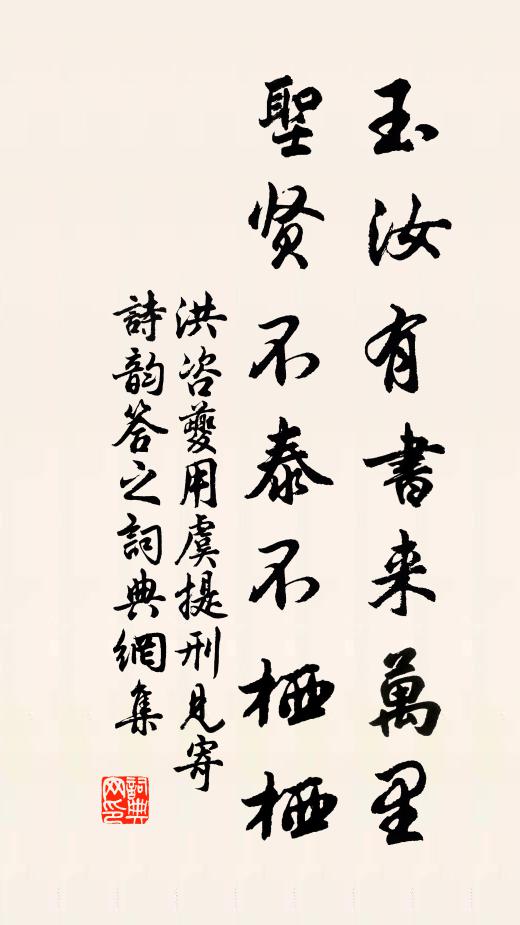 玉汝有書来萬里
聖贤不泰不栖栖
洪咨夔用虞提刑見寄
詩韵答之詞典網集
詞典网印